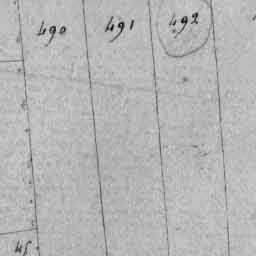 490 491 492